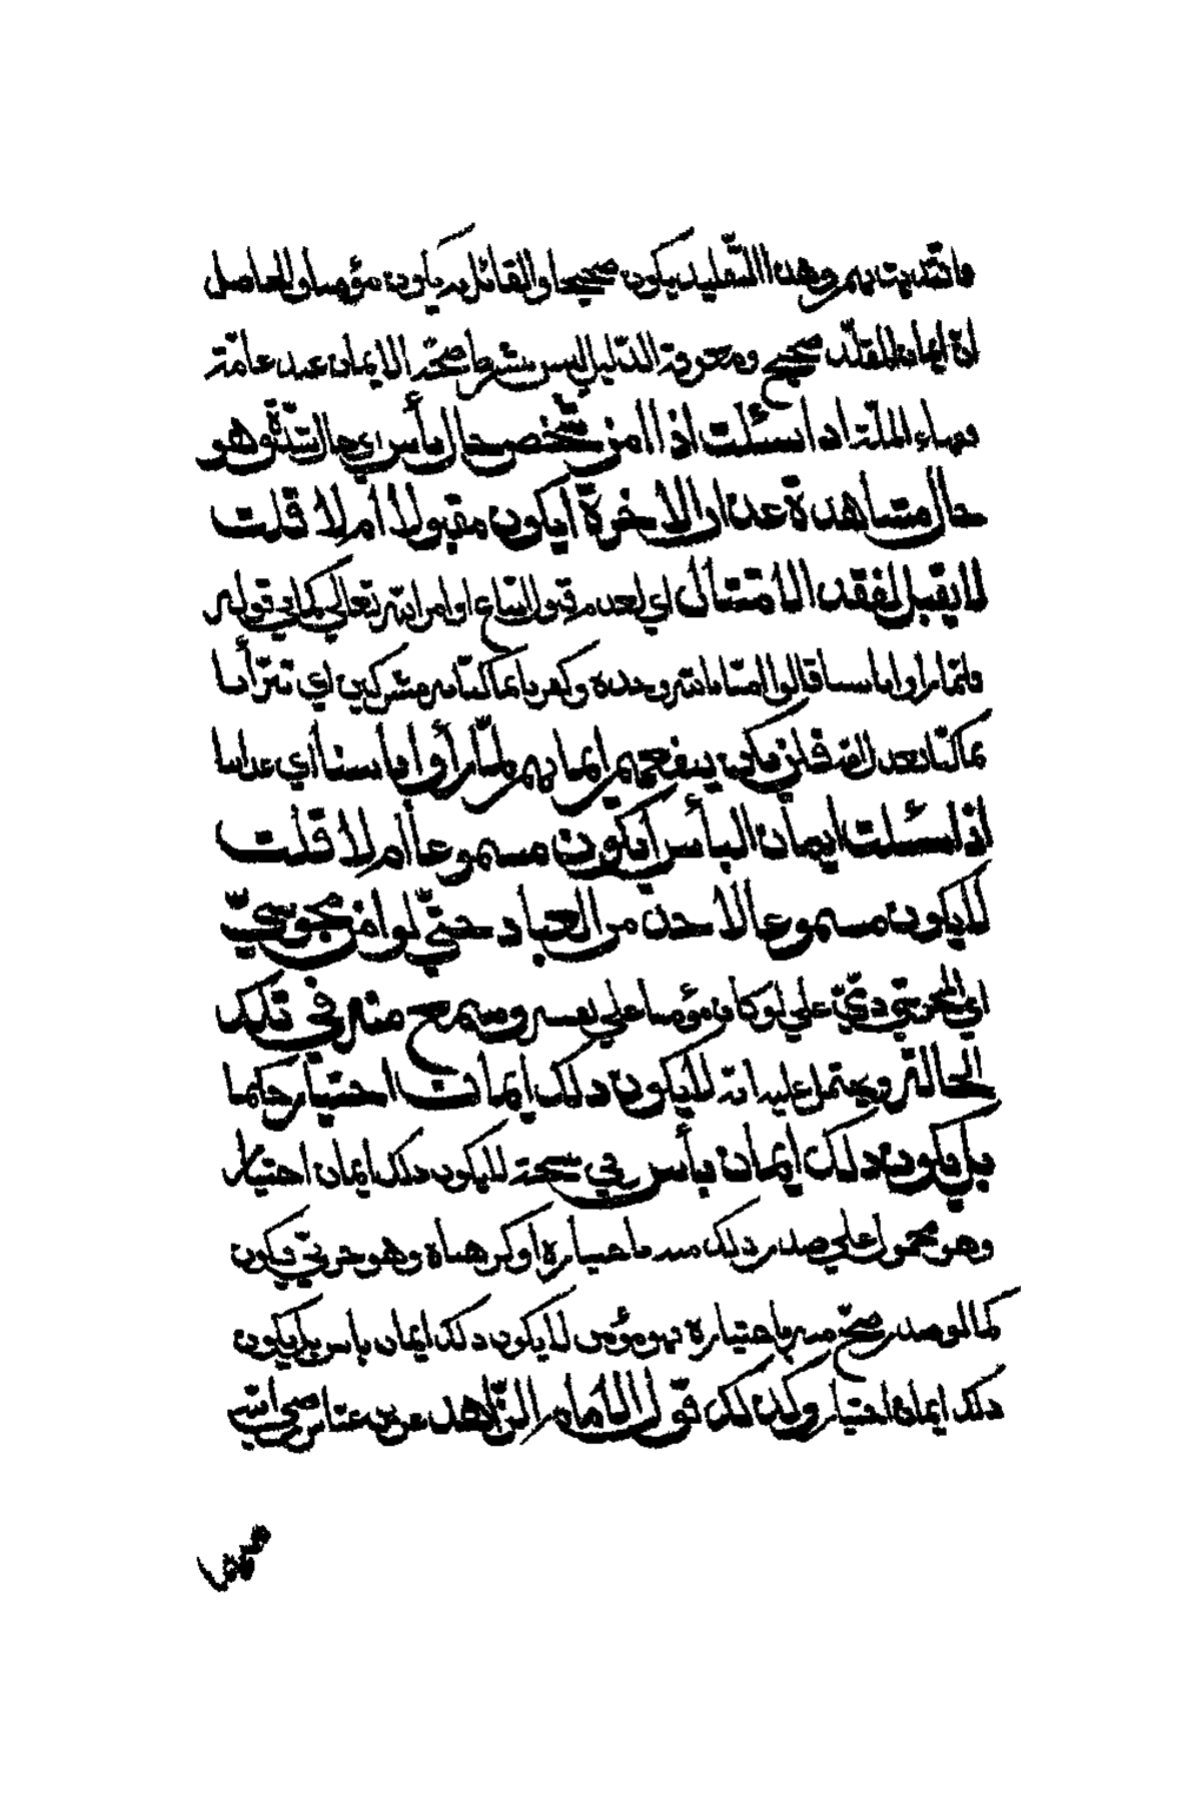 فاقتديت بهم وهذا التقليد يكون صحيحا والقائل به يكون مؤمنا والحاصل
ان ايمان المقلد صحيح ومعرفة الدليل ليس بشرط صحة الايمان عند عامة
فقهاء الملة اذا سئلت اذا امن شخص حال بأس اي حال شدة وهو
حال مشاهدة عذار الاخرة ايكون مقبولا ام لا قلت
لا يقبل لفقد الامتثال اي لعدم قبول اتباع اوامر الله تعالى كما في قوله
فلما راوا باسنا قالوا امنا بالله وحده وكفرنا بما كنا به مشركين اي تبرأنا
بما كنا نعدل الله فلم يكن ينفعهم ايمانهم لما رأوا بأسنا اي عذابنا
اذا سئلت ايمان البأس ايكون مسموعا ام لا قلت
لا يكون مسموعا لاحد من العباد حتى لو امن مجوسي
اي الحربي ذمي على لو كان مؤمنا على نفسه وسمع منه في تلك
الحالة ويحتمل عليه انه لا يكون ذلك ايمان اختيار حكما
بل يكون ذلك ايمان بأس في صحة لا يكون ذلك ايمان اختيار
وهو محمول على صدر ذلك منه باختياره او كرهناه وهو حربي فيكون
كما لو صدر صح منه باختياره فهو مؤمن لا يكون ذلك ايمان باس بل يكون
ذلك ايمان اختيار وكذلك قول الامام الزاهد عن بن عباس رضي الله